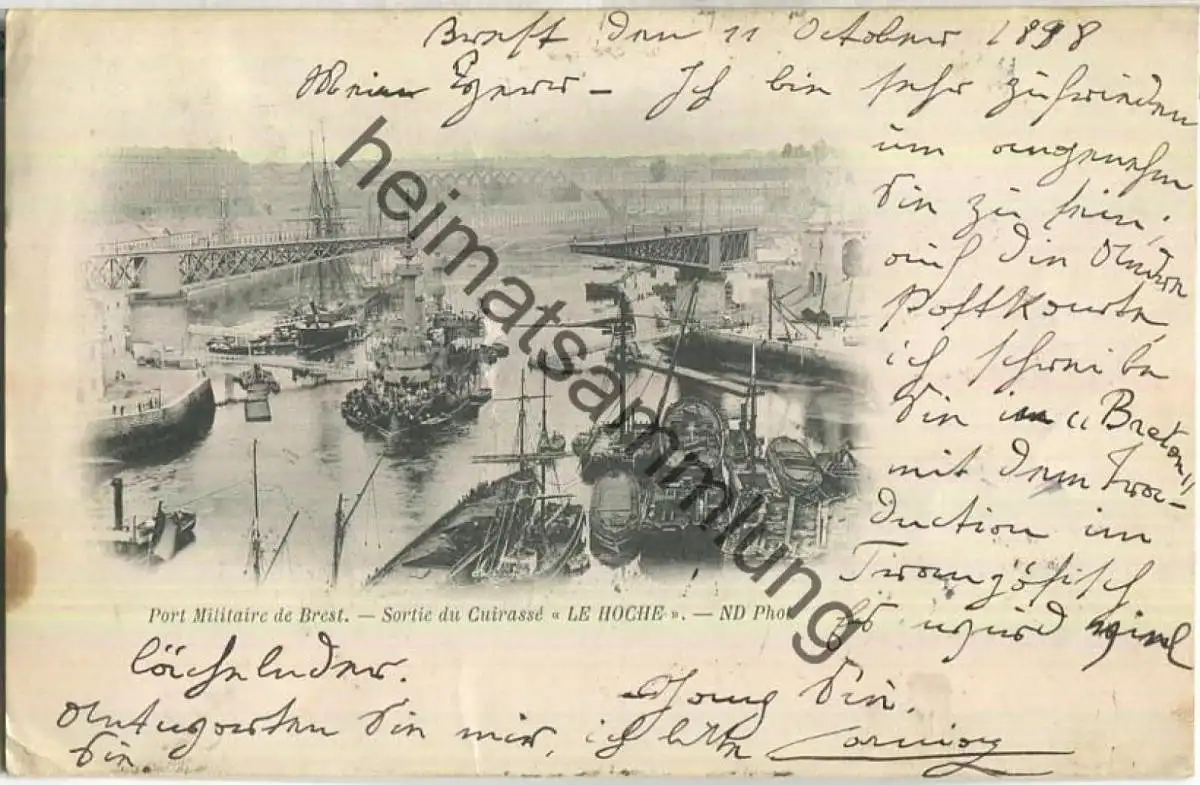 Brest den 11 October 1898
Mein Herr – Ich bin sehr zufrieden
um angenehm
Sie zu sein;
auf die Andere
Postkarte
ich schreibe
Sie im "Breton"
mit dem Tra-
duction im
Französisch
Es wird viel
lächelnder.
Sie.
Antworten Sie mir, ich bitte
Sie.
Port Militaire de Brest. — Sortie du Cuirassé « LE HOCHE ». — ND Phot
heimatsammlung